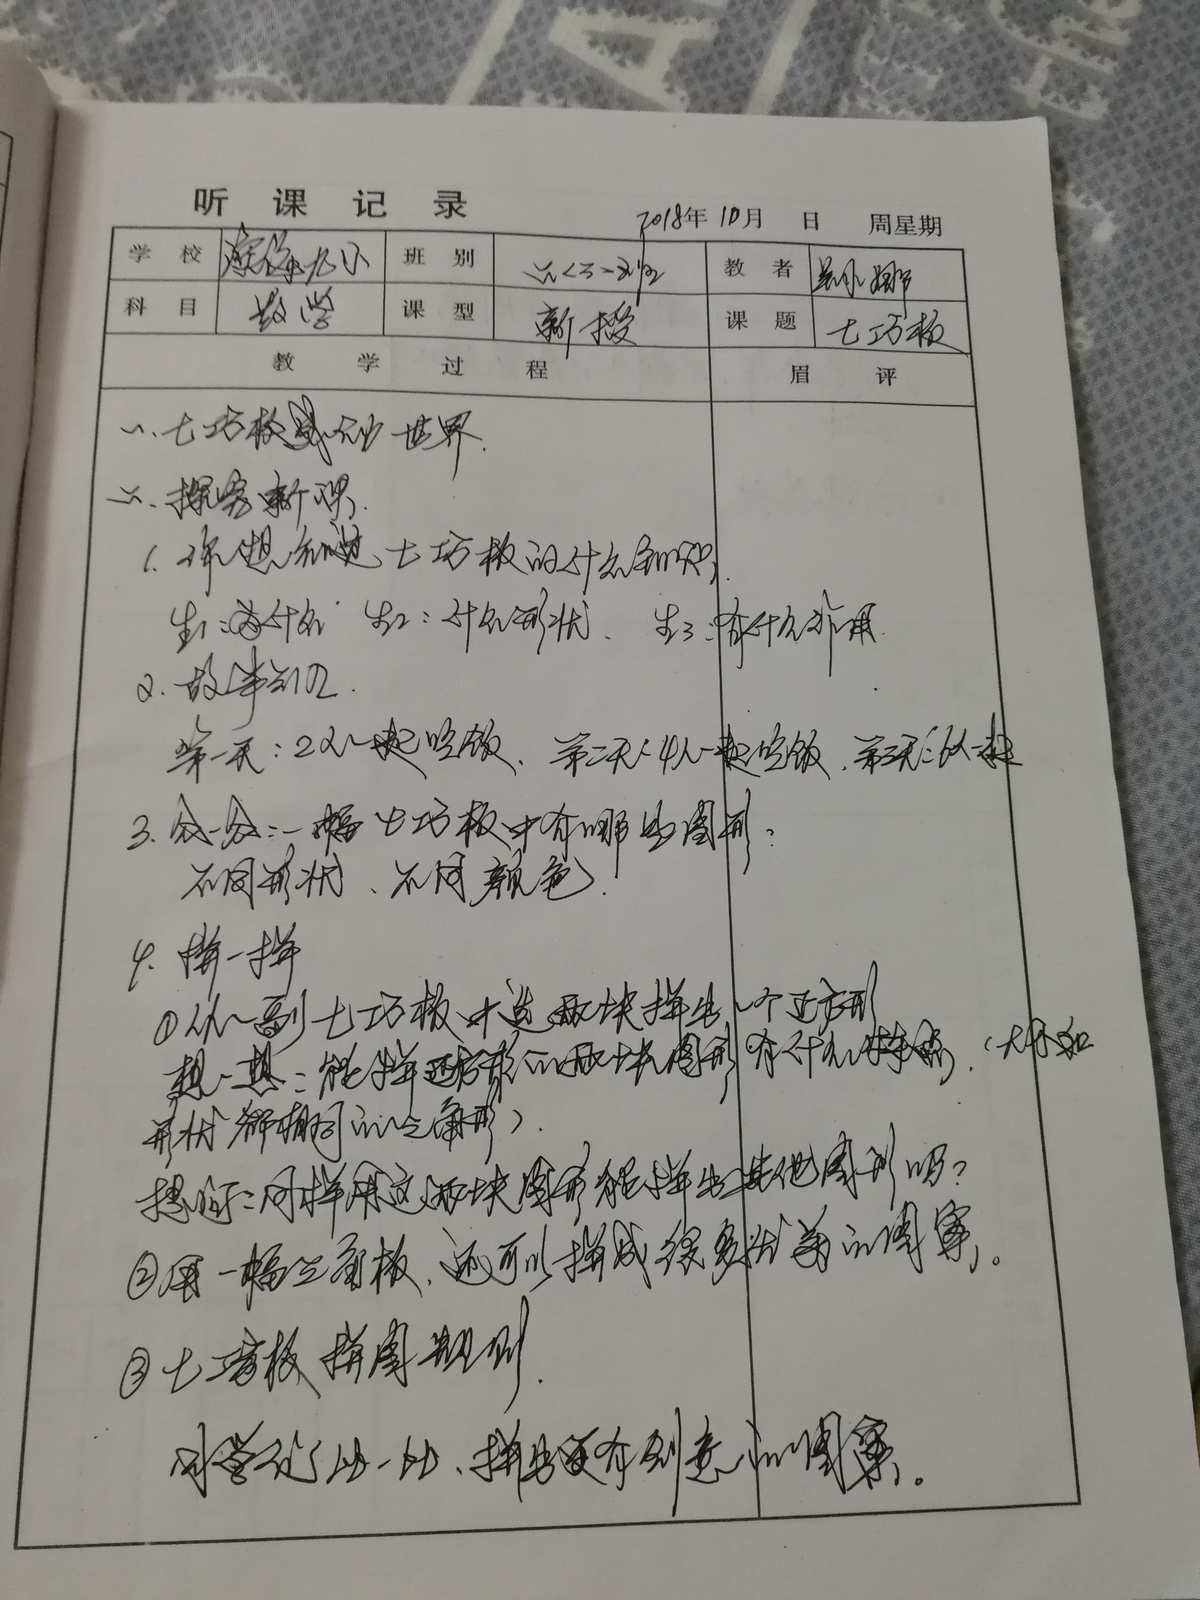 听课记录
2018年10月 日 周星期
学校 九小 班别 教者 娜
科目 数学 课型 新授 课题 七巧板
教学过程 眉评
一、七巧板 世界.
二、探究新课.
1. 你想知道七巧板的什么知识.
生1:为什么 生2:什么形状、 生3:有什么作用
2. 故事引入.
第一天:2人一起吃饭、第二天:4人一起吃饭、第三天:
3. 分一分:一幅七巧板中有哪些图形?
不同形状、不同颜色.
4. 拼一拼
①从一副七巧板中选两块拼出一个正方形
想一想:能拼正方形的两块图形有什么特点.(大小和
形状都相同的三角形).
想:同样用这两块图形能拼出其他图形吗?
②用一幅七巧板、还可以拼成很多优美的图案。
③七巧板拼图规则.
同学们比一比、拼出更有创意的图案。